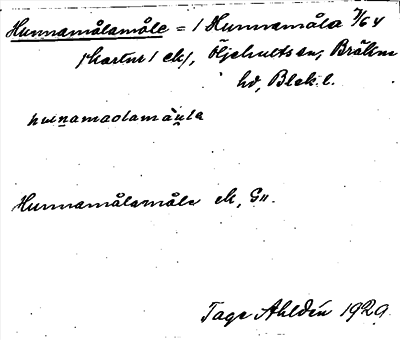 Hunnamålamåle = / Hunnamåla 7/64
/kartur / ek/, Öljehults sn, Bräkne
hd, Blek. l.
hunamaolamåula
Hunnamålamåle ek, G11.
Tage Ahldén 1929